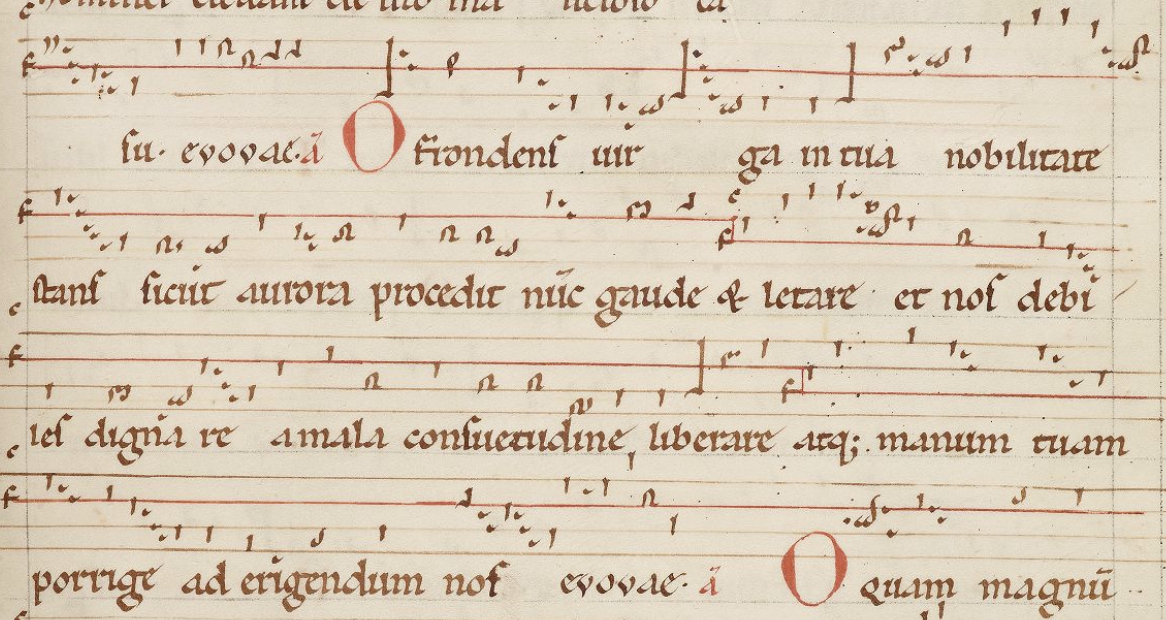 su. evovae. ā O frondens uir ga in tua nobilitate
stans sicut aurora procedit nūc gaude & letare et nos debi
les dignā re a mala consuetudine, liberare atq; manum tuam
porrige ad erigendum nos evovae. ā O quam magnū